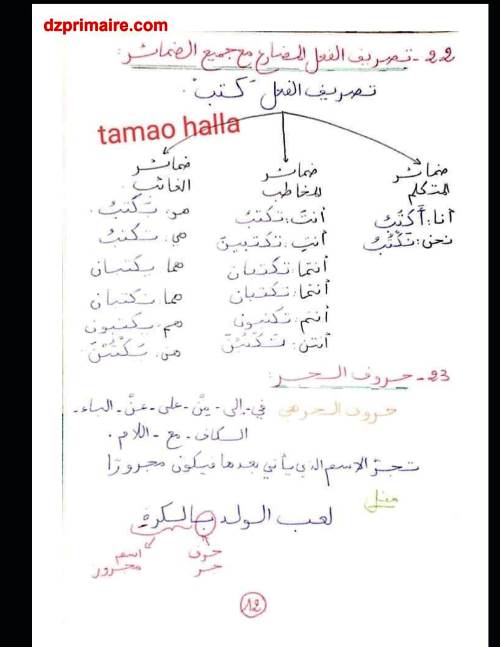 dzprimaire.com
22- تصريف الفعل المضارع مع جميع الضمائر:
تصريف الفعل "كتب".
tamao halla
ضمائر المتكلم
أنا: أَكْتُبُ
نحن: نَكْتُبُ
ضمائر المخاطب
أنتَ: تَكتبُ
أنتِ: تكتبينَ
أنتما: تكتبان
أنتما: تكتبان
أنتم: تكتبون
أنتن: تَكْتُبْنَ
ضمائر الغائب
هو: يَكْتبُ.
هي: تَكتبُ
هما يكتبان
هما: تكتبان
هم: يكتبون
هن: يَكْتُبْنَ
23- حروف الجر:
حروف الجر هي في - إلى - مِنْ - على - عَنْ - الباء -
الكاف - مع - اللام.
تجرّ الاسم الذي يأتي بعدها فيكون مجرورًا
مثل
لعب الولد بالكرةِ
حرف جر
اسم مجرور
12